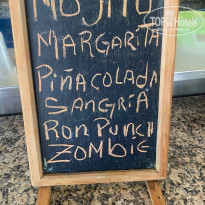 MOJITO
MARGARITA
PIÑA COLADA
SANGRIA
RON PUNCH
ZOMBIE